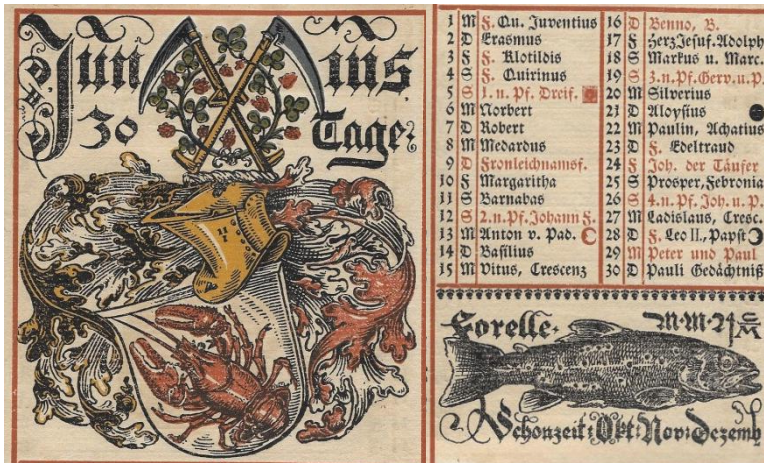 Junius
30 Tage:
1 M F. Qu. Juventius
2 D Erasmus
3 F F. Klotildis
4 S F. Quirinus
5 S 1. n. Pf. Dreif.
6 M Norbert
7 D Robert
8 M Medardus
9 D Fronleichnamsf.
10 F Margaritha
11 S Barnabas
12 S 2. n. Pf. Johann F.
13 M Anton v. Pad.
14 D Basilius
15 M Vitus, Crescenz
16 D Benno, B.
17 F Herz Jesuf. Adolph
18 S Markus u. Marc.
19 S 3. n. Pf. Gerv. u. P.
20 M Silverius
21 D Aloysius
22 M Paulin, Achatius
23 D F. Edeltraud
24 F Joh. der Täufer
25 S Prosper, Febronia
26 S 4. n. Pf. Joh. u. P.
27 M Ladislaus, Cresc.
28 D F. Leo II., Papst
29 M Peter und Paul
30 D Pauli Gedächtniß
Forelle.
Schonzeit: Okt: Nov: Dezemb